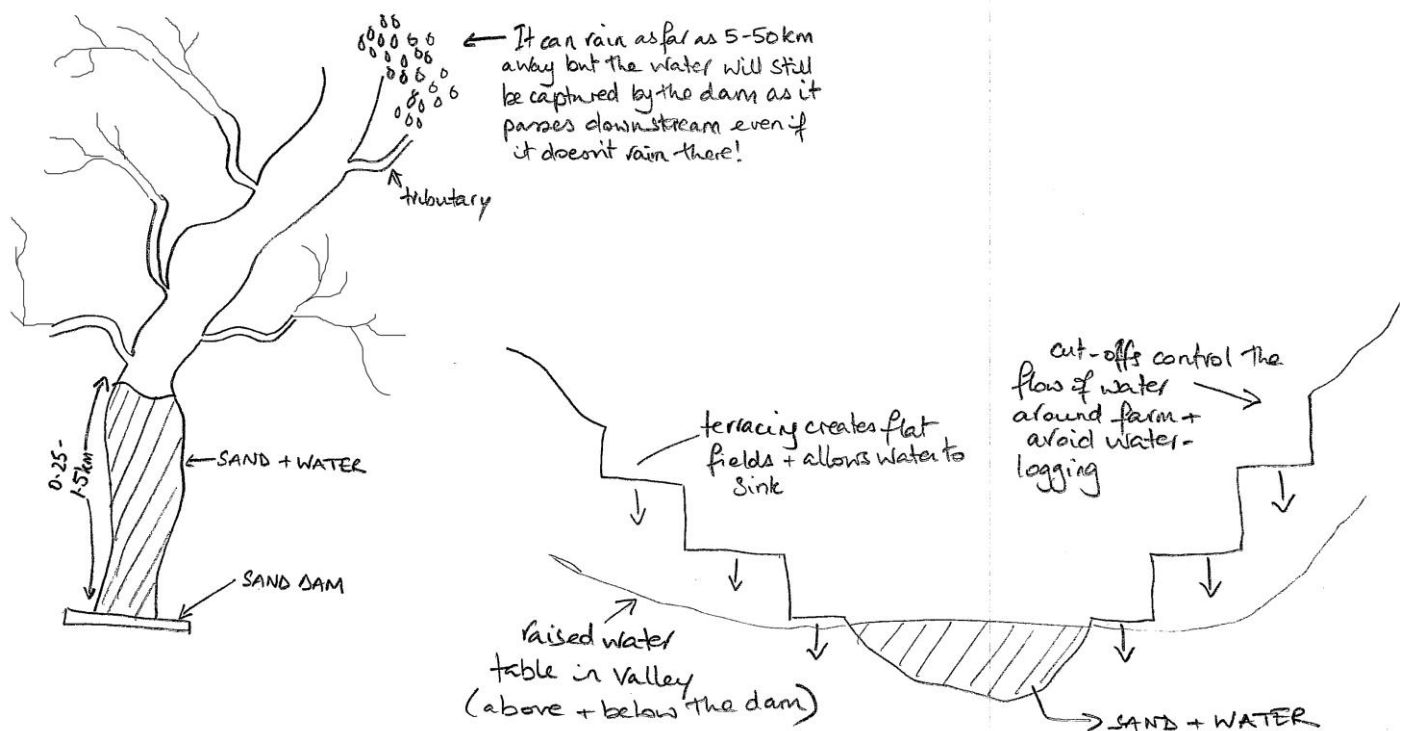 It can rain as far as 5-50km
away but the water will still
be captured by the dam as it
passes downstream even if
it doesn't rain there!
tributary
0.25-
1.5km
SAND + WATER
SAND DAM
terracing creates flat
fields + allows water to
sink
cut-offs control the
flow of water
around farm +
avoid water-
logging
raised water
table in valley
(above + below the dam)
SAND + WATER